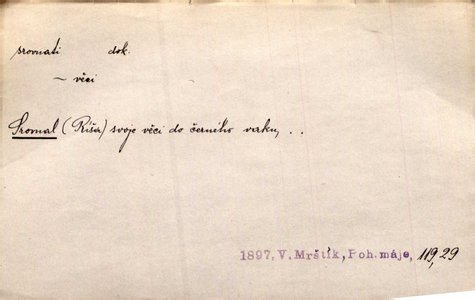 srovnati dok.
~ věci
Srovnal (Ríša) svoje věci do černého vaku, . .
1897, V. Mrštík, Poh. máje, 119, 29